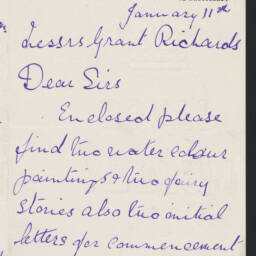 January 11th
Messrs Grant Richards
Dear Sirs
Enclosed please
find two water colour
paintings & two fairy
stories also two initial
letters for commencement